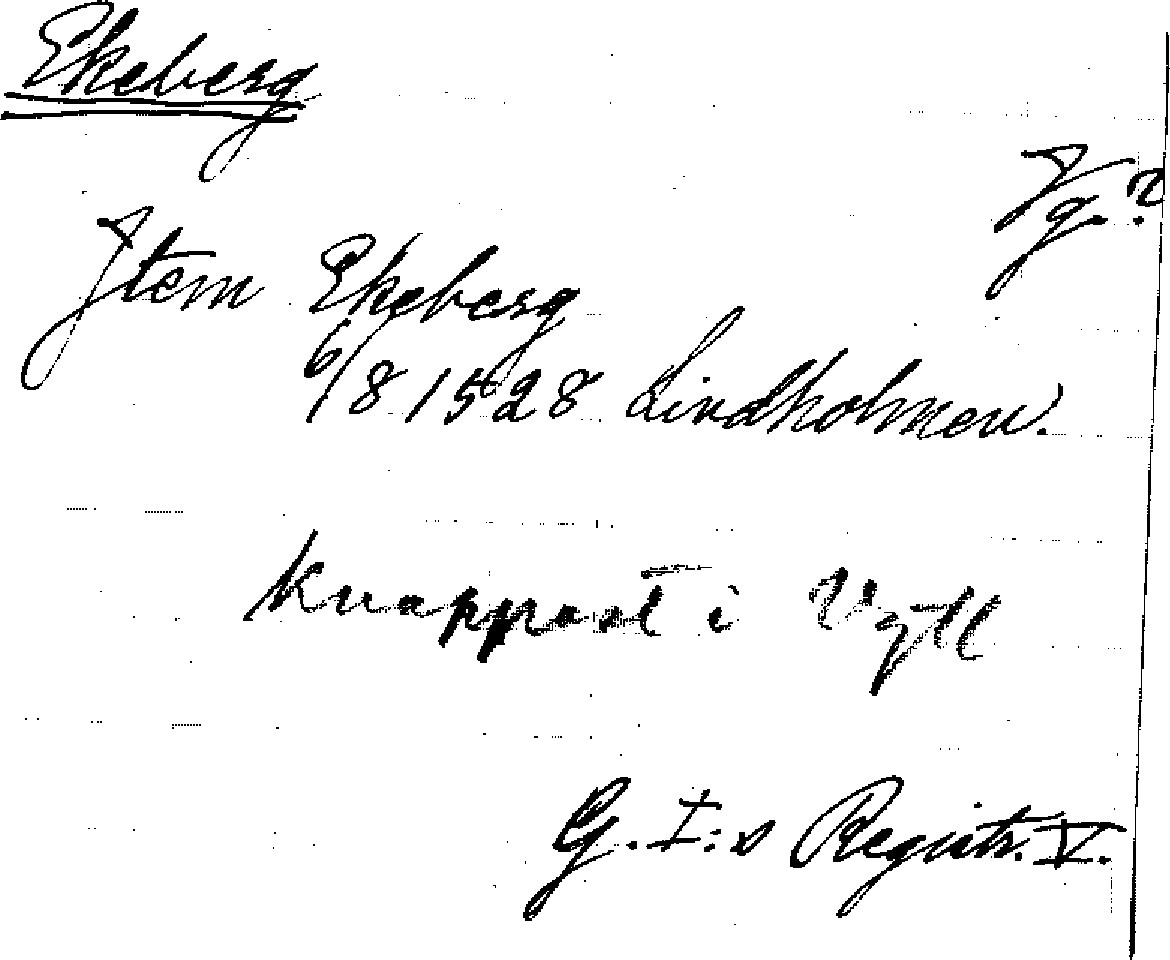 Ekeberg
Vg.?
Item Ekeberg
6/8 1528 Lindholmen.
knappast i Vgtl
G. I:s Registr. V.